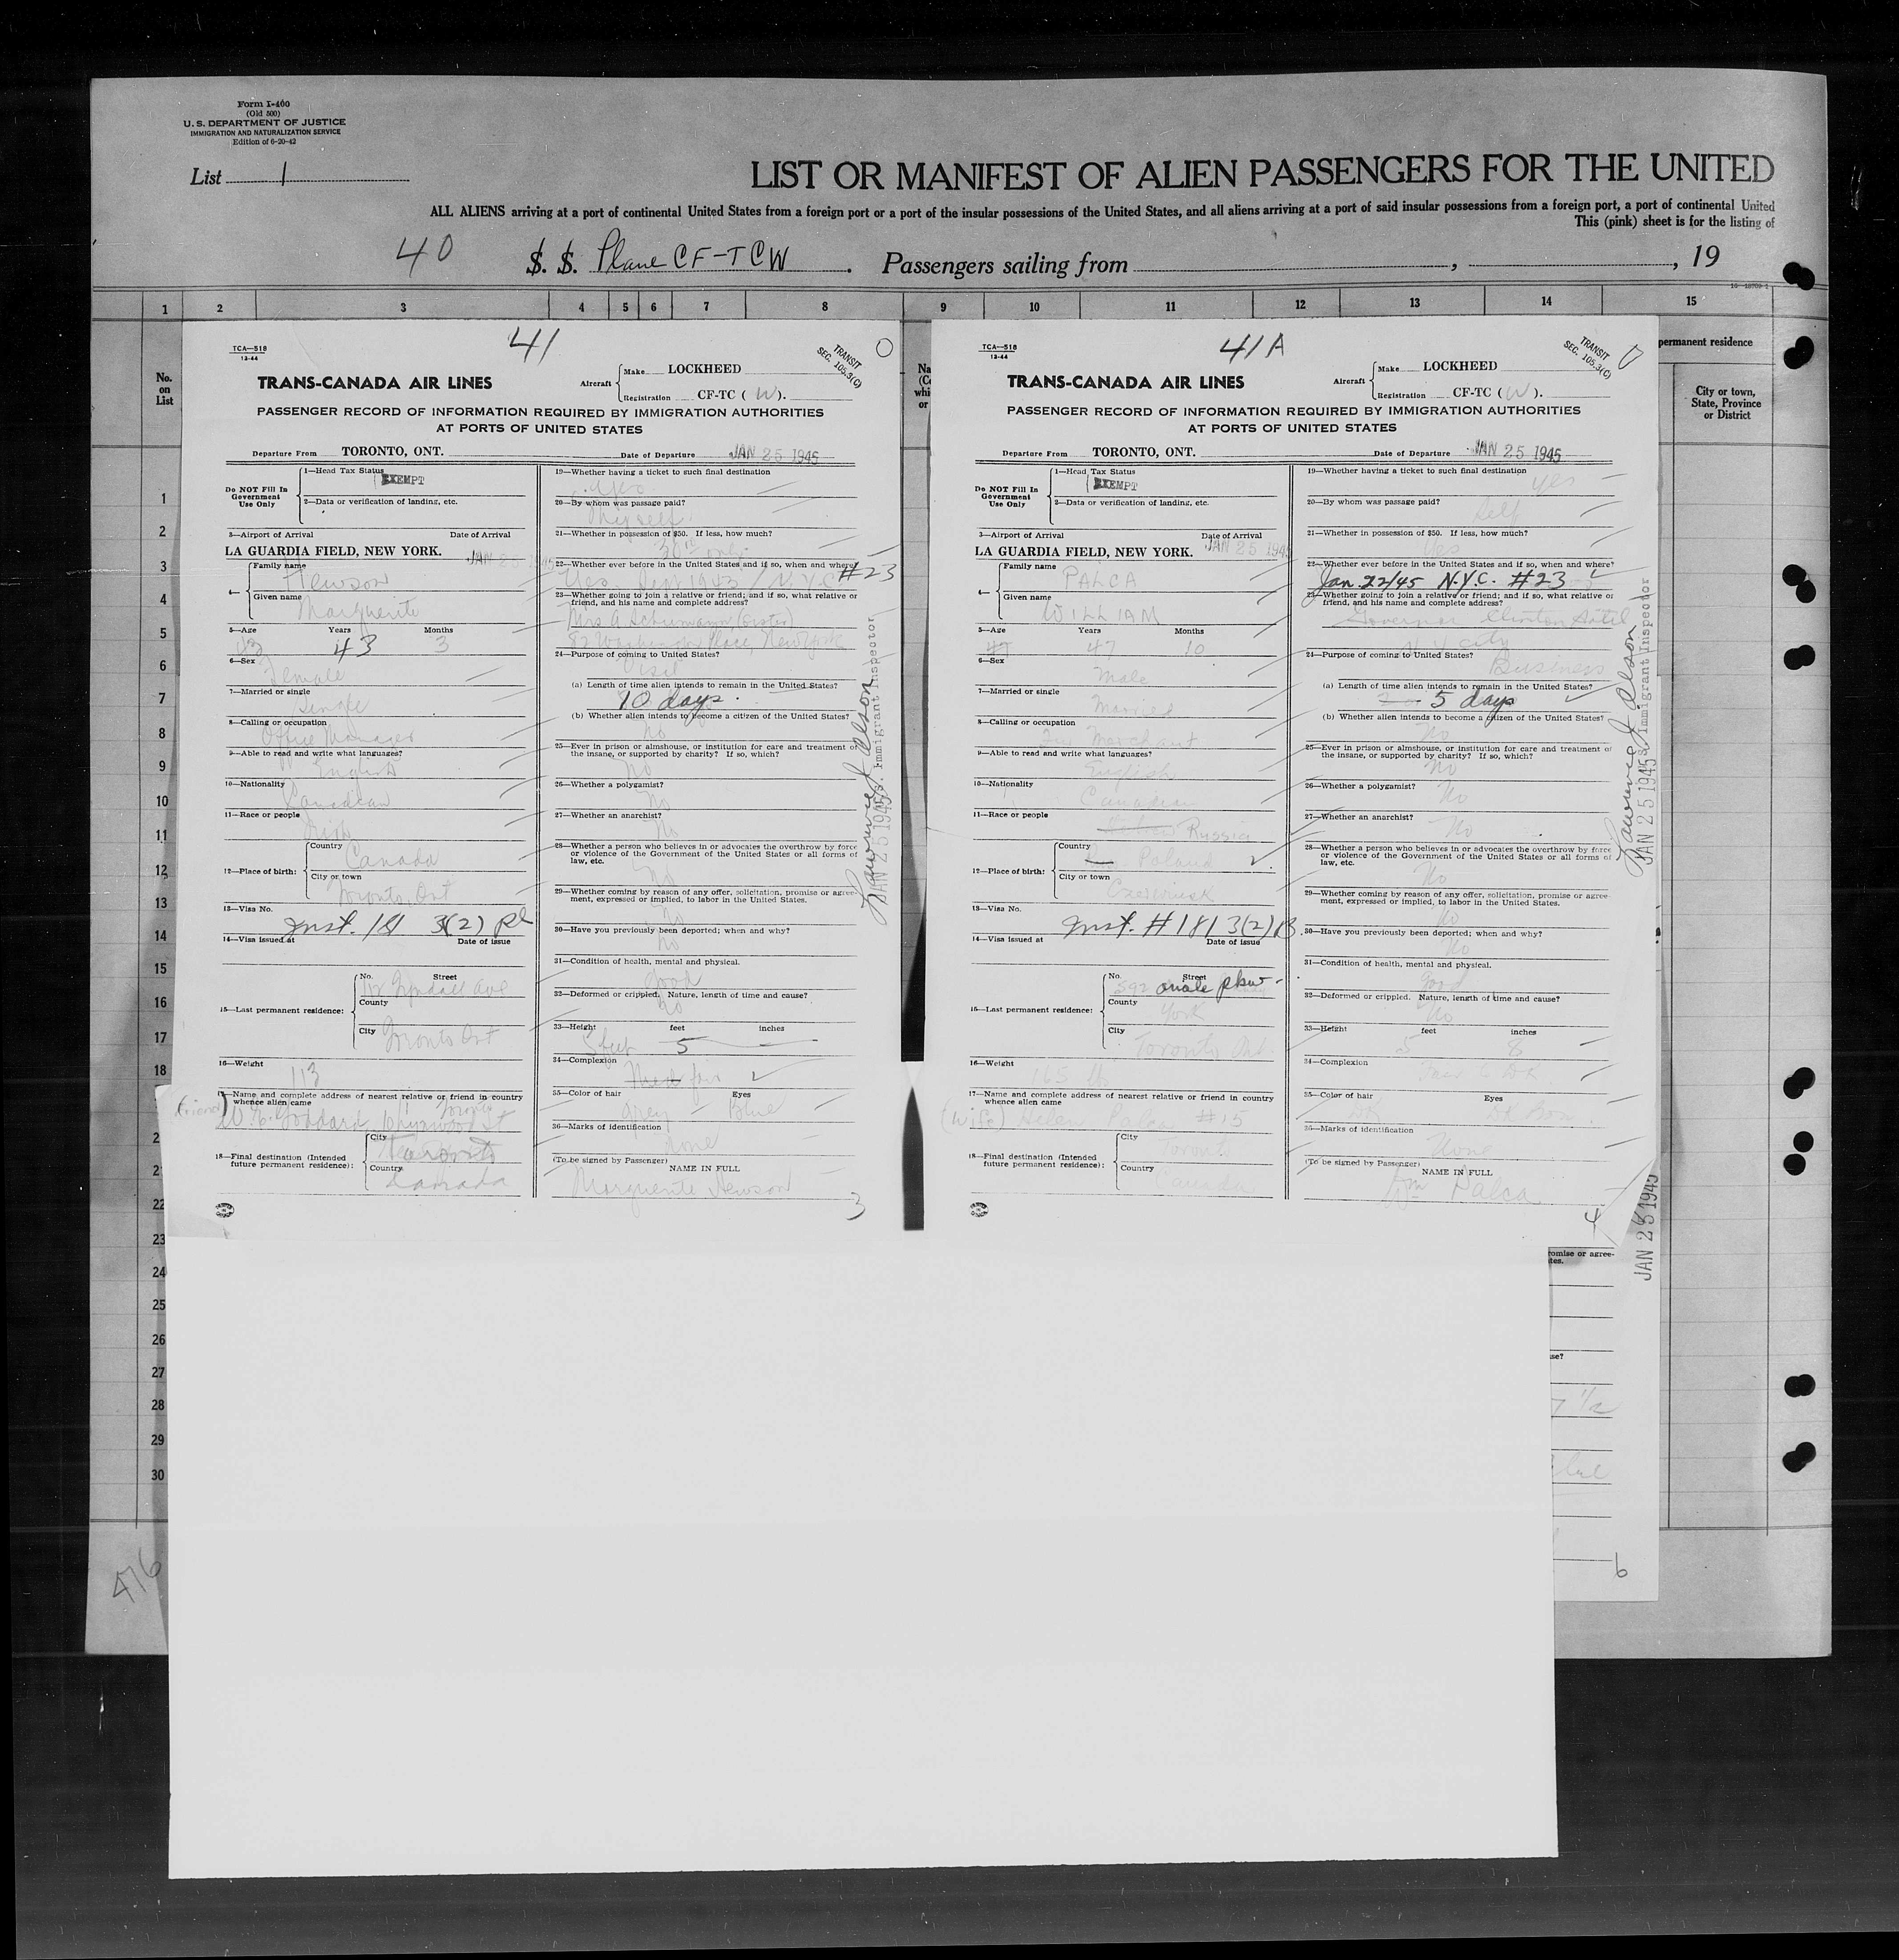 Form I-400
(Old 500)
U. S. DEPARTMENT OF JUSTICE
IMMIGRATION AND NATURALIZATION SERVICE
Edition of 6-20-42
List 1
LIST OR MANIFEST OF ALIEN PASSENGERS FOR THE UNITED
ALL ALIENS arriving at a port of continental United States from a foreign port or a port of the insular possessions of the United States, and all aliens arriving at a port of said insular possessions from a foreign port, a port of continental United
This (pink) sheet is for the listing of
40 S. S. Plane CF-TCW . Passengers sailing from , , 19
1 2 3 4 5 6 7 8 9 10 11 12 13 14 15
No. on List
permanent residence
City or town, State, Province or District
1
2
3
4
5
6
7
8
9
10
11
12
13
14
15
16
17
18
22
23
24
25
26
27
28
29
30
476
41
TCA—518
12-44
TRANSIT
SEC. 105.3(C)
TRANS-CANADA AIR LINES
Aircraft Make LOCKHEED
Registration CF-TC ( W ).
PASSENGER RECORD OF INFORMATION REQUIRED BY IMMIGRATION AUTHORITIES
AT PORTS OF UNITED STATES
Departure From TORONTO, ONT. Date of Departure JAN 25 1945
Do NOT Fill In Government Use Only
1—Head Tax Status
EXEMPT
2—Data or verification of landing, etc.
3—Airport of Arrival Date of Arrival
LA GUARDIA FIELD, NEW YORK. JAN 25 1945
4— Family name Hewson
Given name Marguerite
5—Age Years Months
43 3
6—Sex
Female
7—Married or single
Single
8—Calling or occupation
Office Manager
9—Able to read and write what languages?
English
10—Nationality
Canadian
11—Race or people
Irish
12—Place of birth: Country Canada
City or town
Toronto, Ont
13—Visa No.
Inst. 181 3(2)
14—Visa issued at Date of issue
15—Last permanent residence: No. Street
Tyndall Ave
County
City Toronto Ont
16—Weight
113
17—Name and complete address of nearest relative or friend in country
whence alien came
(friend) Goddard,
18—Final destination (Intended future permanent residence): City
Toronto
Country
Canada
19—Whether having a ticket to such final destination
Yes
20—By whom was passage paid?
Myself
21—Whether in possession of $50. If less, how much?
only
22—Whether ever before in the United States and if so, when and where?
Yes Sept 1943 N.Y.C. #23
23—Whether going to join a relative or friend; and if so, what relative or
friend, and his name and complete address?
Mrs A Schumann (sister)
Place, New York
24—Purpose of coming to United States?
Visit
(a) Length of time alien intends to remain in the United States?
10 days
(b) Whether alien intends to become a citizen of the United States?
No
25—Ever in prison or almshouse, or institution for care and treatment of
the insane, or supported by charity? If so, which?
No
26—Whether a polygamist?
No
27—Whether an anarchist?
No
28—Whether a person who believes in or advocates the overthrow by force
or violence of the Government of the United States or all forms of
law, etc.
No
29—Whether coming by reason of any offer, solicitation, promise or agree-
ment, expressed or implied, to labor in the United States.
No
30—Have you previously been deported; when and why?
No
31—Condition of health, mental and physical.
Good
32—Deformed or crippled. Nature, length of time and cause?
No
33—Height feet inches
5 —
34—Complexion
fair
35—Color of hair Eyes
Grey Blue
36—Marks of identification
None
(To be signed by Passenger) NAME IN FULL
Marguerite Hewson
3
JAN 25 1945
Immigrant Inspector
41A
TCA—518
12-44
TRANSIT
SEC. 105.3(C)
TRANS-CANADA AIR LINES
Aircraft Make LOCKHEED
Registration CF-TC ( W ).
PASSENGER RECORD OF INFORMATION REQUIRED BY IMMIGRATION AUTHORITIES
AT PORTS OF UNITED STATES
Departure From TORONTO, ONT. Date of Departure JAN 25 1945
Do NOT Fill In Government Use Only
1—Head Tax Status
EXEMPT
2—Data or verification of landing, etc.
3—Airport of Arrival Date of Arrival
LA GUARDIA FIELD, NEW YORK. JAN 25 1945
4— Family name
PALCA
Given name
WILLIAM
5—Age Years Months
47 47 10
6—Sex
Male
7—Married or single
Married
8—Calling or occupation
Merchant
9—Able to read and write what languages?
English
10—Nationality
Canadian
11—Race or people
Hebrew Russia
12—Place of birth: Country
Poland
City or town
13—Visa No.
Inst. #181 3(2)B
14—Visa issued at Date of issue
15—Last permanent residence: No. Street
592
County
York
City
Toronto Ont
16—Weight
165 lb
17—Name and complete address of nearest relative or friend in country
whence alien came
(Wife) Helen Palca #15
18—Final destination (Intended future permanent residence): City
Toronto
Country
Canada
19—Whether having a ticket to such final destination
Yes
20—By whom was passage paid?
Self
21—Whether in possession of $50. If less, how much?
Yes
22—Whether ever before in the United States and if so, when and where?
Jan. 22/45 N.Y.C. #23
23—Whether going to join a relative or friend; and if so, what relative or
friend, and his name and complete address?
Governor Clinton Hotel
N.Y. City
24—Purpose of coming to United States?
Business
(a) Length of time alien intends to remain in the United States?
5 days
(b) Whether alien intends to become a citizen of the United States?
No
25—Ever in prison or almshouse, or institution for care and treatment of
the insane, or supported by charity? If so, which?
No
26—Whether a polygamist?
No
27—Whether an anarchist?
No
28—Whether a person who believes in or advocates the overthrow by force
or violence of the Government of the United States or all forms of
law, etc.
No
29—Whether coming by reason of any offer, solicitation, promise or agree-
ment, expressed or implied, to labor in the United States.
No
30—Have you previously been deported; when and why?
No
31—Condition of health, mental and physical.
Good
32—Deformed or crippled. Nature, length of time and cause?
No
33—Height feet inches
5 8
34—Complexion
35—Color of hair Eyes
DK DK Brn
36—Marks of identification
None
(To be signed by Passenger) NAME IN FULL
Wm Palca
4
JAN 25 1945
Immigrant Inspector
JAN 25 1945
romise or agree-
tes.
se?
7 1/2
Blue
6